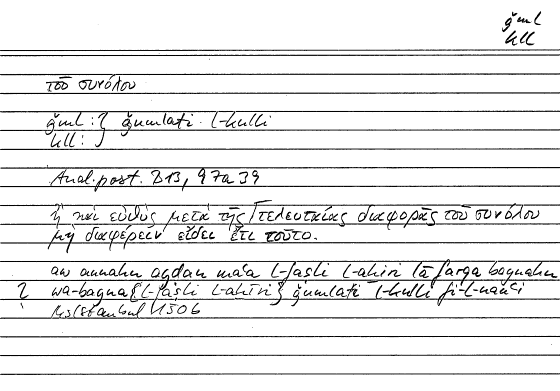 ǧml
kll
τοῦ συνόλου
ǧml : } ǧumlati l-kulli
kll : }
Anal. post. B 13, 97a 39
ἢ καὶ εὐθὺς μετὰ τῆς τελευταίας διαφορᾶς τοῦ συνόλου
μὴ διαφέρειν εἴδει ἔτι τοῦτο.
aw annahu ayḍan maʿa l-faṣli l-aḫīri lā farqa baynahu
? wa-bayna {l-faṣli l-aḫīri} ǧumlati l-kulli fī l-nawʿi
Hs Istanbul 1506